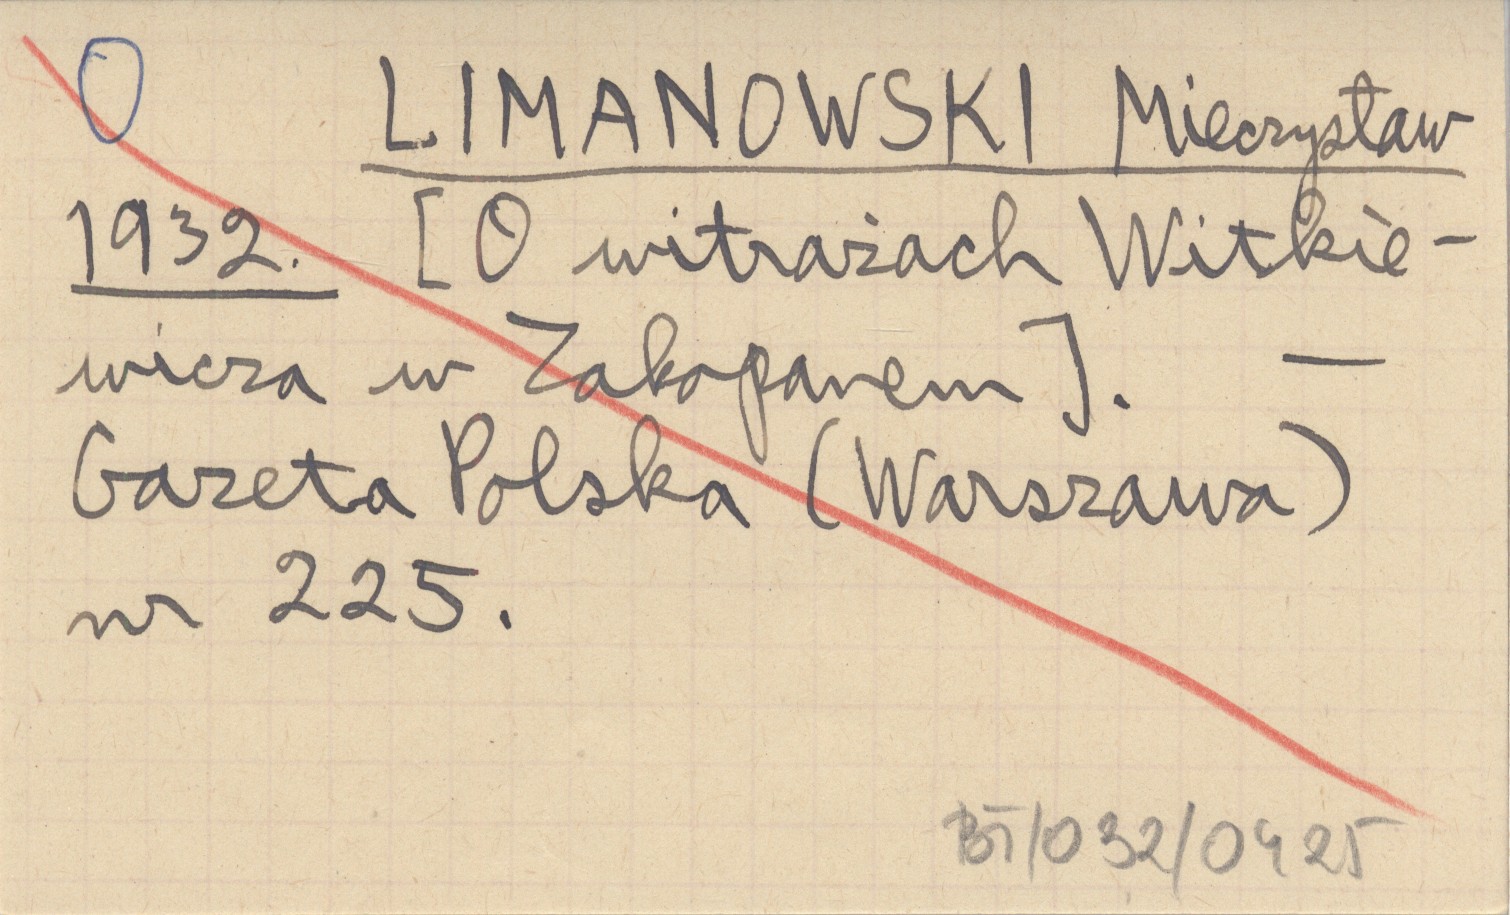 O LIMANOWSKI Mieczysław
1932. [O witrażach Witkie-
wicza w Zakopanem]. —
Gazeta Polska (Warszawa)
nr 225.
BT/032/0425